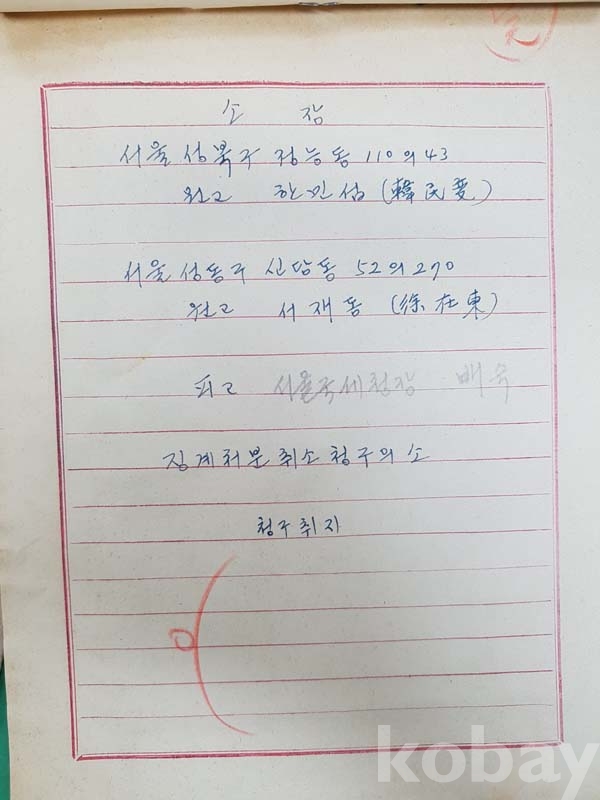 소 장
서울 성북구 정능동 110의 43
원고 한민섭 (韓民燮)
서울 성동구 신당동 52의 270
원고 서재동 (徐在東)
피고 서울국세청장 배
징계처분 취소 청구의 소
청구취지
kobay